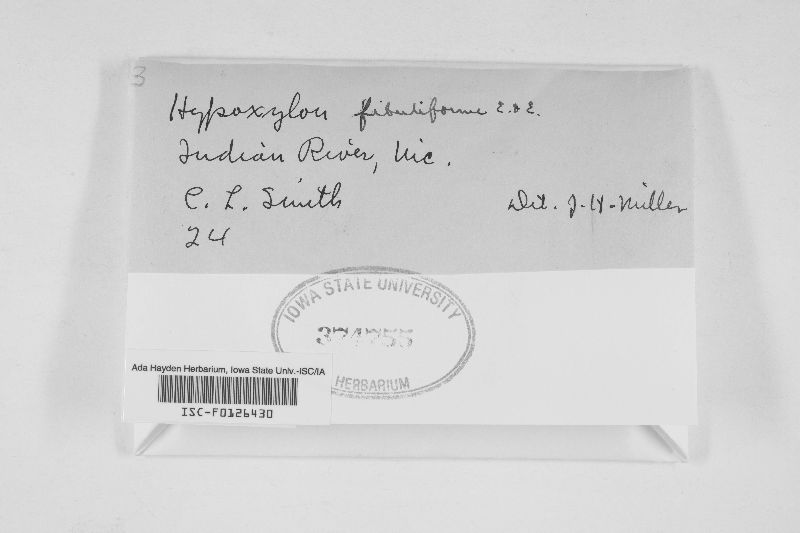 3
Hypoxylon fibuliforme E. & E.
Indian River, Nic.
C. L. Smith Det. J. H. Miller
24
IOWA STATE UNIVERSITY
374755
HERBARIUM
Ada Hayden Herbarium, Iowa State Univ.-ISC/IA
ISC-F0126430